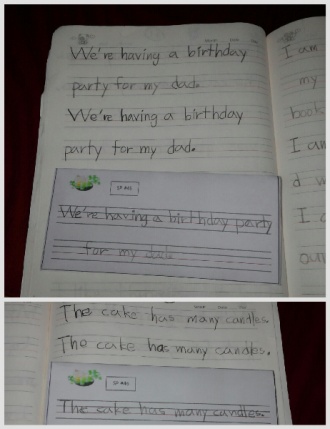 We're having a birthday
party for my dad.
We're having a birthday
party for my dad.
We're having a birthday party
for my dad.
I am
my
book
I am
d w
I
our
The cake has many candles.
The cake has many candles.
The cake has many candles.